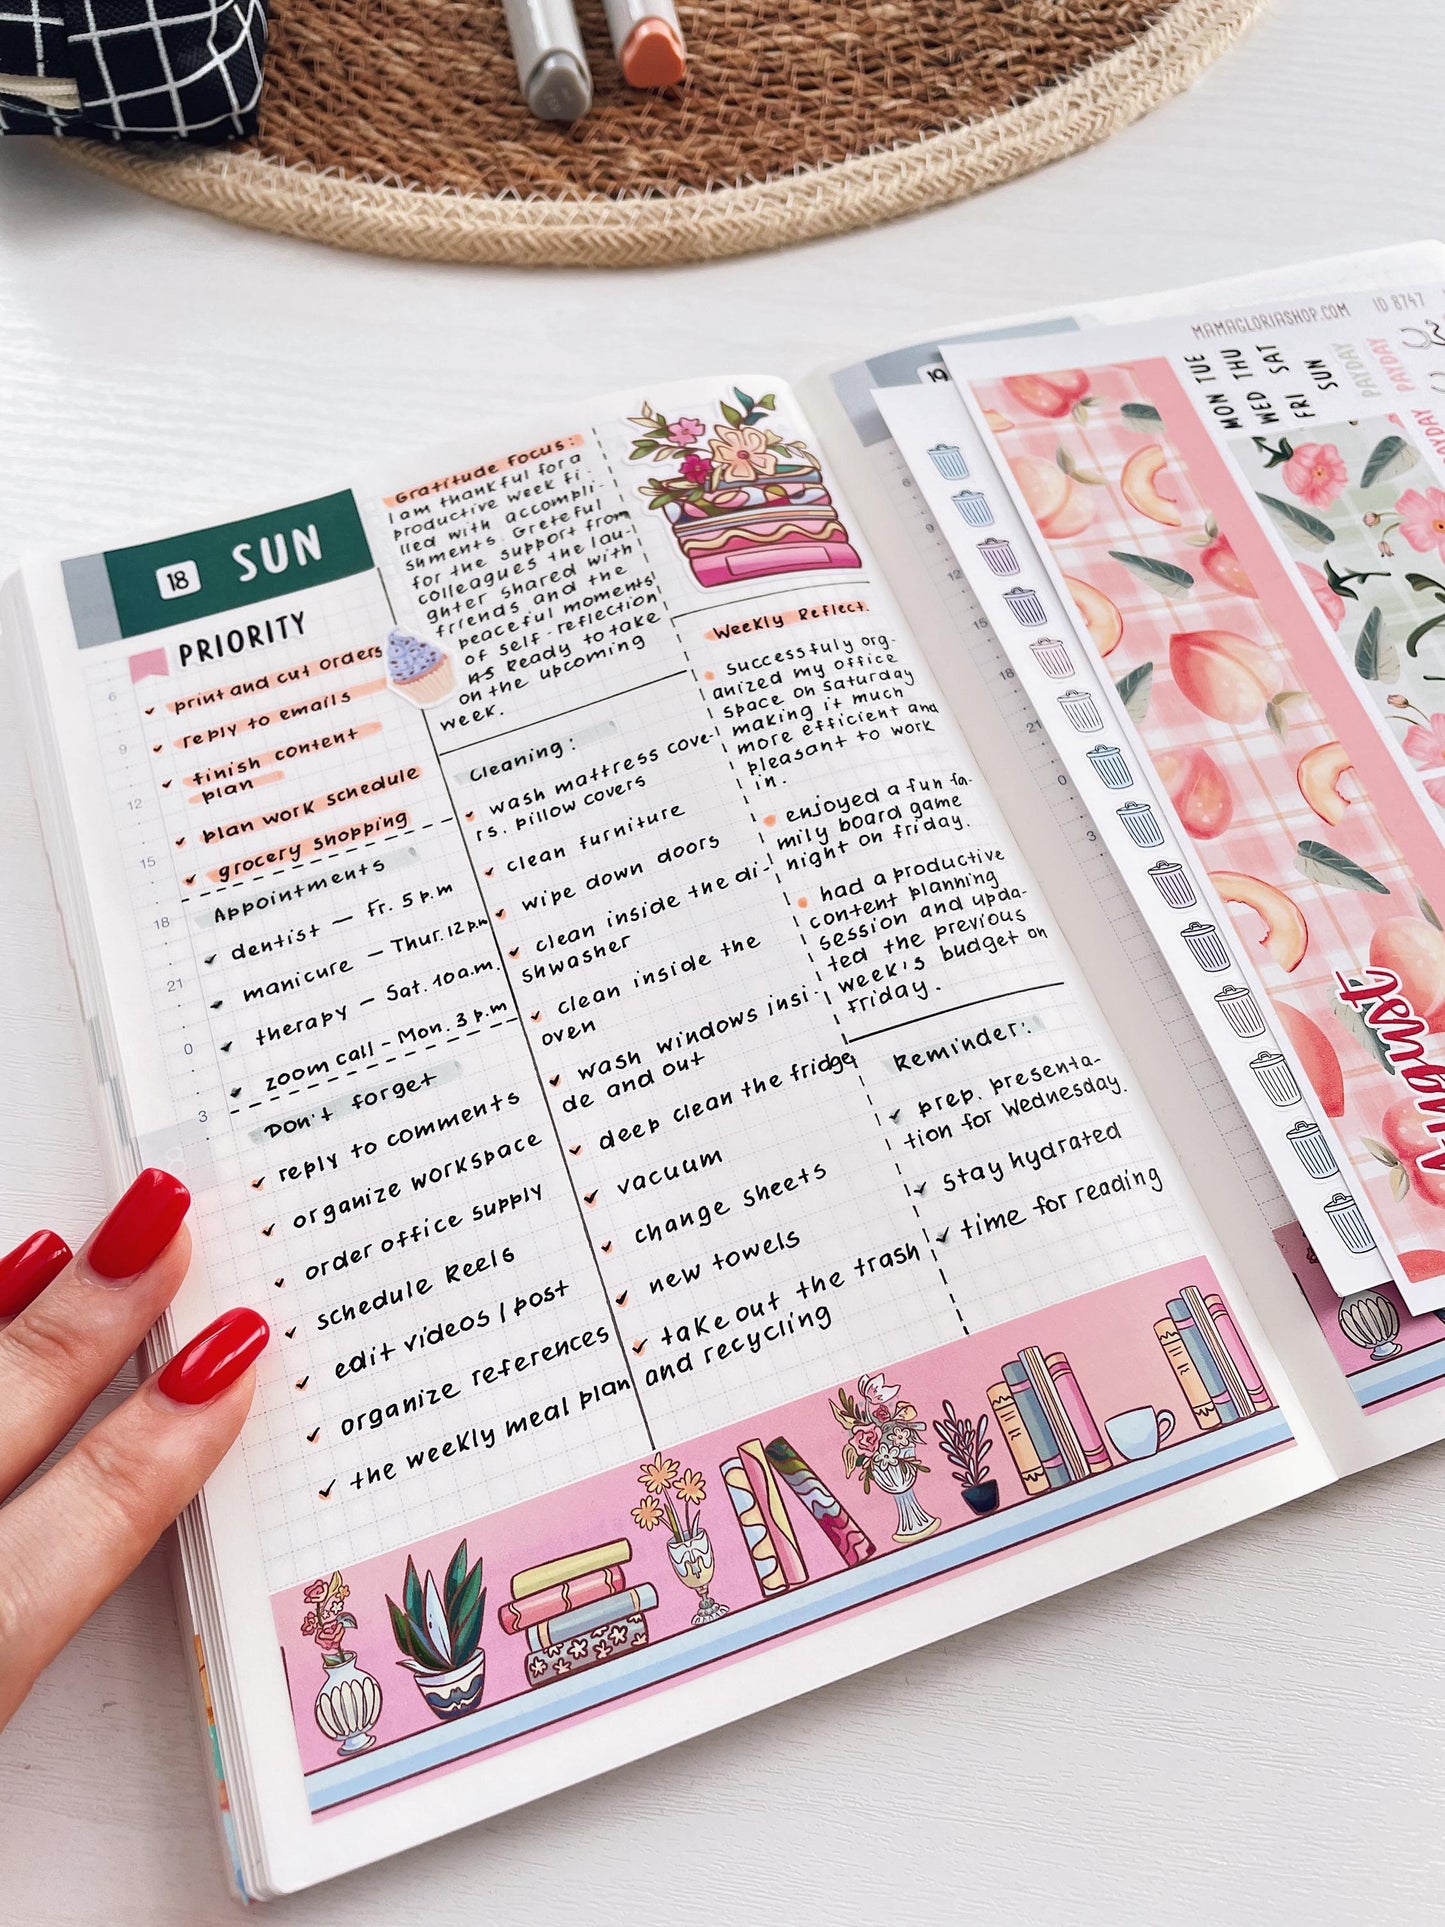 18 SUN
PRIORITY
print and cut orders
reply to emails
finish content
plan
plan work schedule
grocery shopping
Appointments
dentist — Fr. 5 p.m
manicure — Thur. 12 p.m
therapy — Sat. 10 a.m.
zoom call - Mon. 3 p.m
Don't forget
reply to comments
organize workspace
order office supply
schedule Reels
edit videos / post
organize references
the weekly meal plan
Gratitude Focus:
I am thankful for a
productive week fi-
lled with accompli-
shments. Greteful
for the support from
colleagues the lau-
ghter shared with
friends and the
peaceful moments
of self-reflection
Ready to take
on the upcoming
week.
Cleaning:
wash mattress cove-
rs. pillow covers
clean furniture
wipe down doors
clean inside the di-
shwasher
clean inside the
oven
wash windows insi-
de and out
deep clean the fridge
vacuum
change sheets
new towels
take out the trash
and recycling
Weekly Reflect.
successfuly org-
anized my office
space on Saturday
making it much
more efficient and
pleasant to work
in.
enjoyed a fun fa-
mily board game
night on friday.
had a productive
content planning
session and upda-
ted the previous
week's budget on
Friday.
Reminder:
prep. presenta-
tion for Wednesday.
stay hydrated
time for reading
6
9
12
15
18
21
0
3
19
6
9
12
18
21
0
3
MAMAGLORIASHOP.COM ID 8747
MON TUE
WED THU
FRI SAT
SUN
PAYDAY
PAYDAY
August